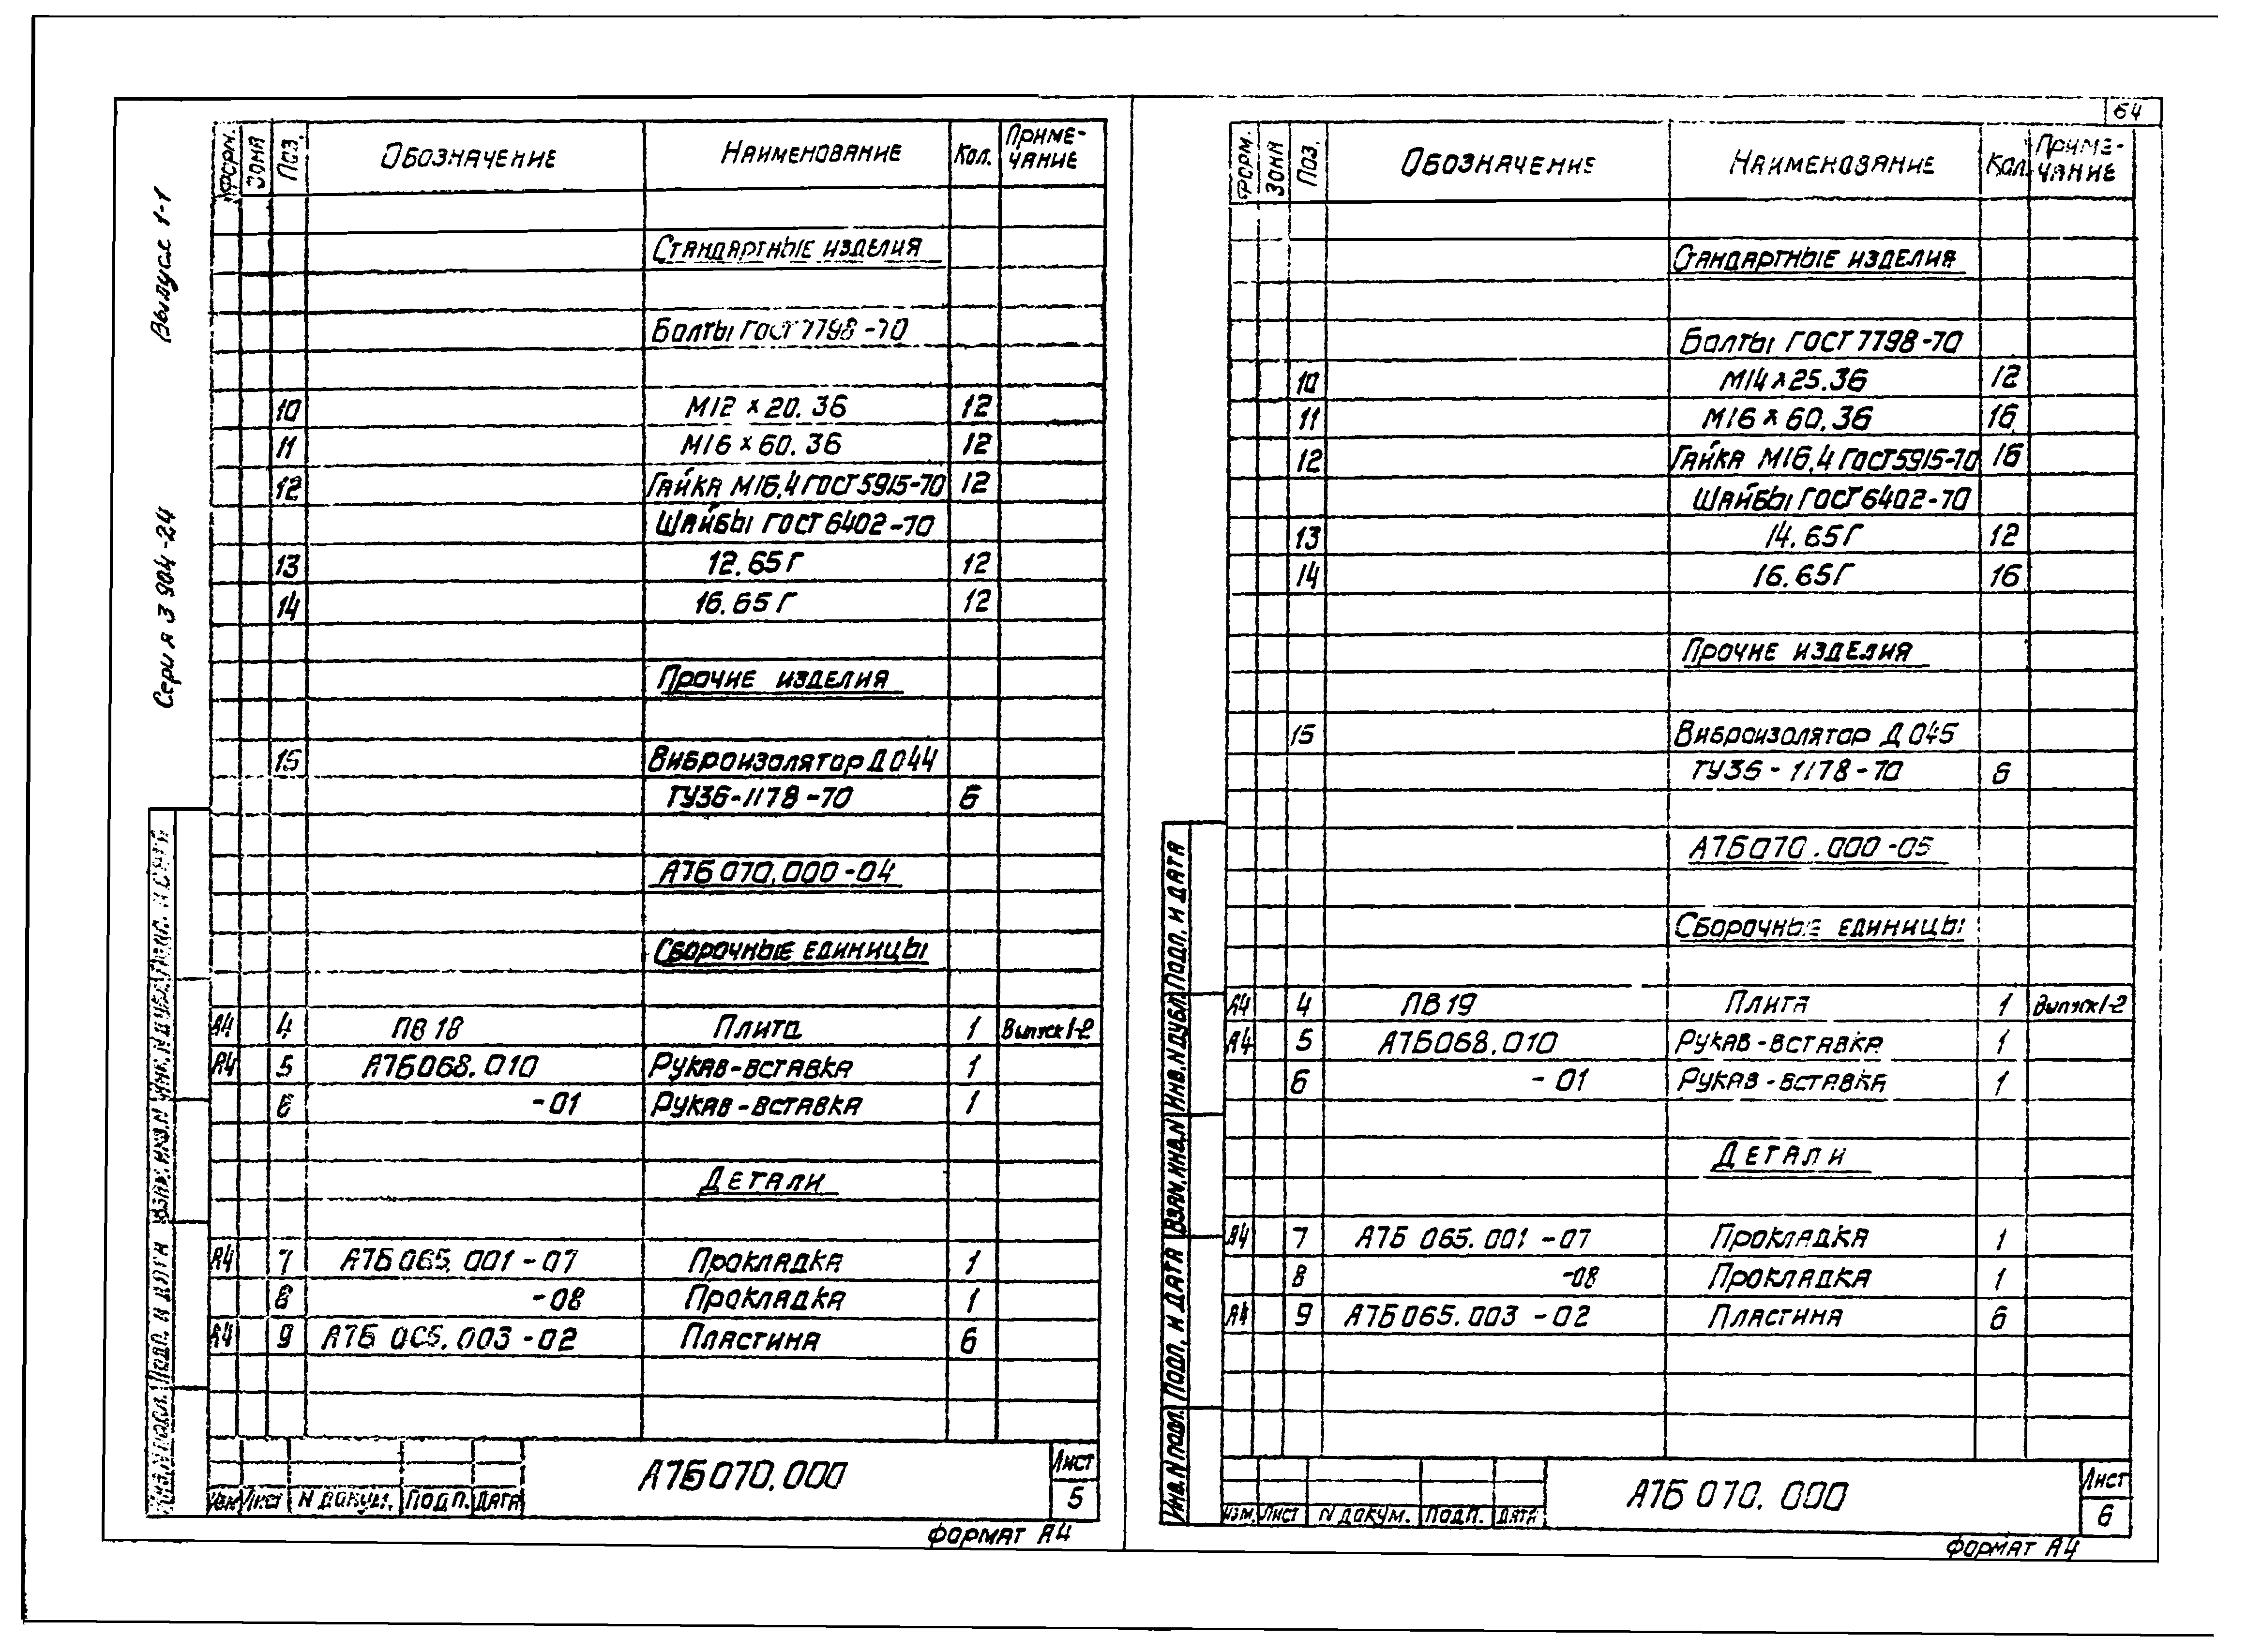 64
Выпуск 1-1
Серия 3 904-24
Форм. Зона Поз. Обозначение Наименование Кол. Приме-
чание
Стандартные изделия
Болты ГОСТ 7798-70
10 М12 х 20. 36 12
11 М16 х 60. 36 12
12 Гайка М16.4 ГОСТ 5915-70 12
Шайбы ГОСТ 6402-70
13 12. 65Г 12
14 16. 65Г 12
Прочие изделия
15 Виброизолятор Д044
ТУ36-1178-70 6
А7Б 070.000-04
Сборочные единицы
А4 4 ПВ 18 Плита 1 Выпуск 1-2
А4 5 А7Б068.010 Рукав-вставка 1
6 -01 Рукав-вставка 1
Детали
А4 7 А7Б 065. 001-07 Прокладка 1
8 -08 Прокладка 1
А4 9 А7Б 065. 003-02 Пластина 6
Изм Лист N докум. Подп. Дата
А7Б 070.000
Лист
5
Формат А4
Инв.N подл. Подп. и дата Взам. инв.N Инв. N дубл. Подп. и дата
Форм. Зона Поз. Обозначение Наименование Кол. Приме-
чание
Стандартные изделия
Болты ГОСТ 7798-70
10 М14 х 25. 36 12
11 М16 х 60. 36 16
12 Гайка М16.4 ГОСТ 5915-70 16
Шайбы ГОСТ 6402-70
13 14. 65Г 12
14 16. 65Г 16
Прочие изделия
15 Виброизолятор Д 045
ТУ36-1178-70 6
А7Б070.000-05
Сборочные единицы
А4 4 ПВ 19 Плита 1 Выпуск 1-2
А4 5 А7Б068.010 Рукав-вставка 1
6 -01 Рукав-вставка 1
Детали
А4 7 А7Б 065. 001-07 Прокладка 1
8 -08 Прокладка 1
А4 9 А7Б065. 003-02 Пластина 6
Изм. Лист N докум. Подп. Дата
А7Б 070. 000
Лист
6
Формат А4
Инв.N подл. Подп. и дата Взам. инв.N Инв. N дубл. Подп. и дата